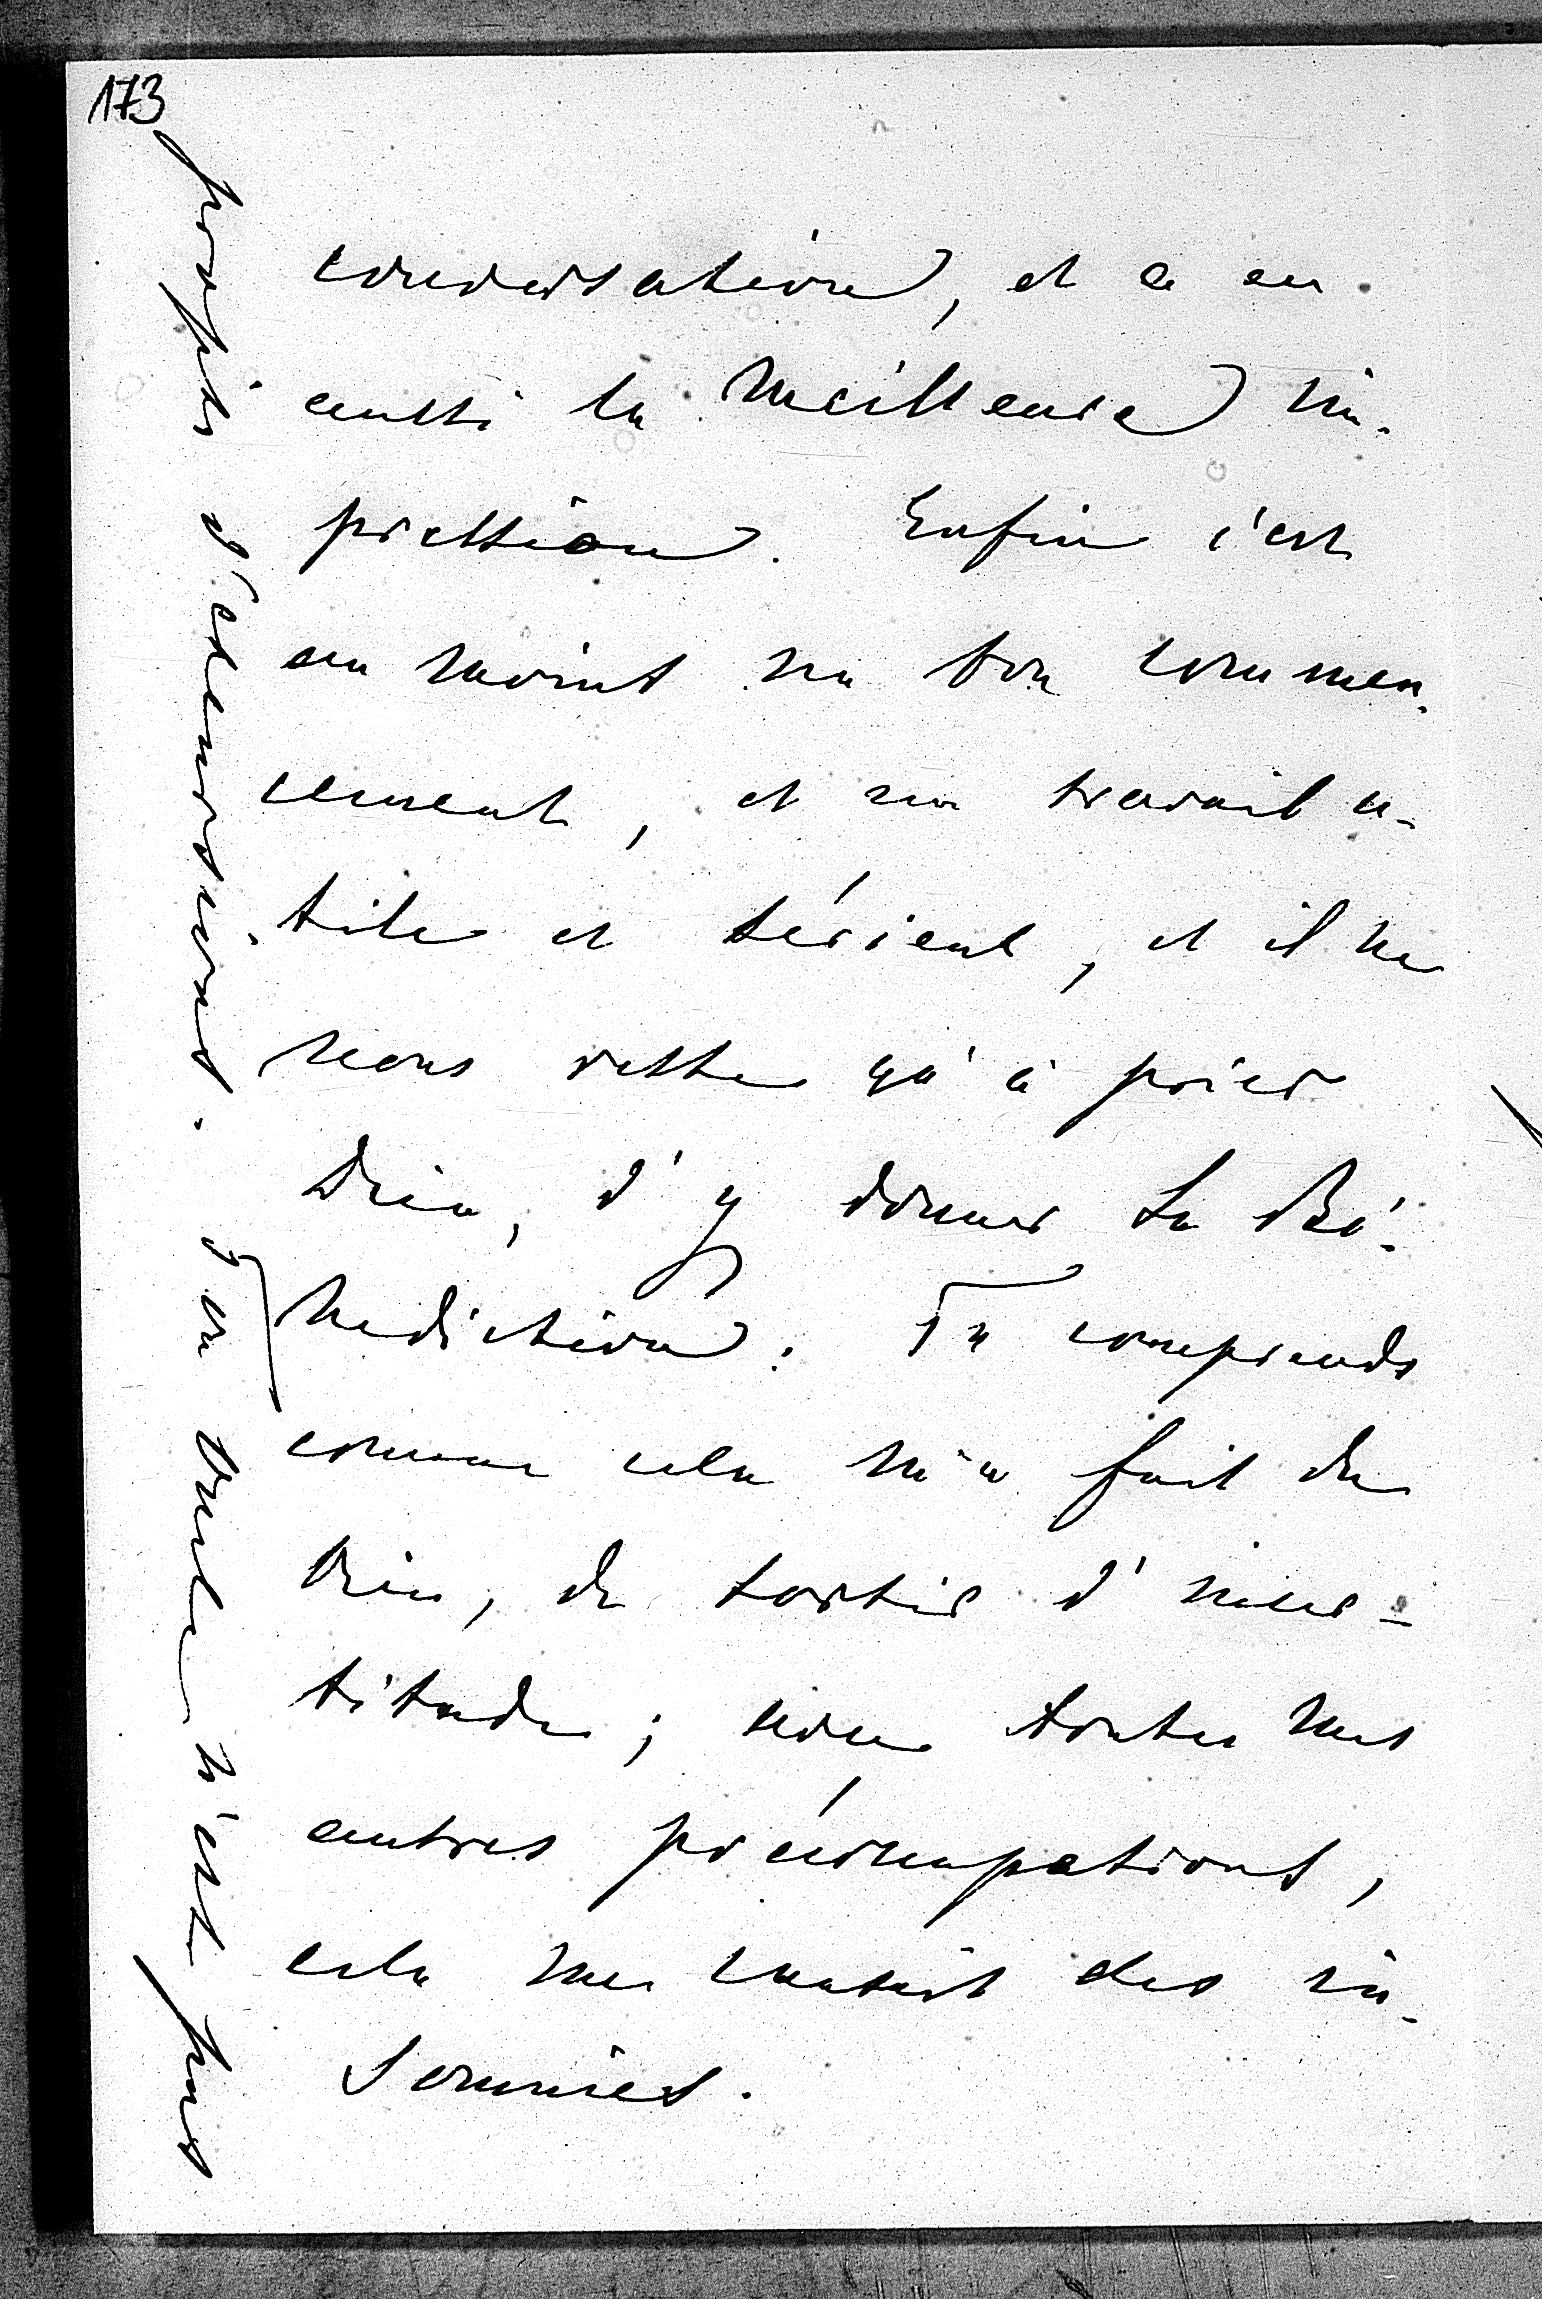 173
conversation, et a eu
aussi la meilleure im-
pression. Enfin c'est
au moins un bon commen-
cement, et un travail u-
tile et sérieux, et il ne
nous reste qu'à prier
Dieu, d'y donner Sa Bé-
nédiction. Tu comprends
comme cela m'a fait du
bien, de sortir d'incer-
titude; avec toutes mes
autres préoccupations,
cela me causait des in-
somnies.
propres d'. Son n'est pas